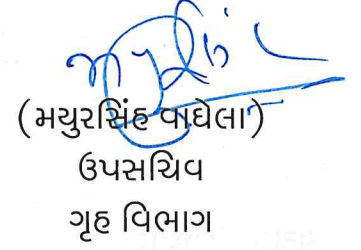 (મયુરસિંહ વાઘેલા)
ઉપસચિવ
ગૃહ વિભાગ